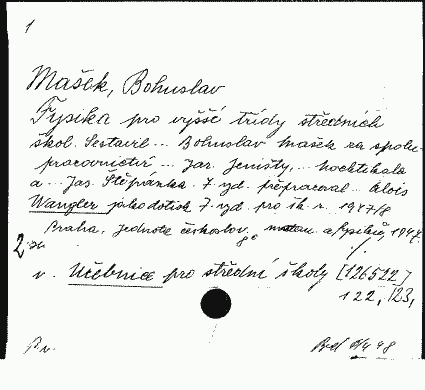 1
Mašek, Bohuslav
Fysika pro vyšší třídy středních
škol. Sestavil... Bohuslav Mašek za spolu-
pracovnictví... Jar. Jeništy,... Nachtikala
a... Jar. Štěpánka. 7. vyd. přepracoval... Alois
Wangler jako dotisk 7. vyd. pro šk. r. 1947/8
Praha, Jednota českoslov. a fysiků, 1947.
2
v. Učebnice pro střední školy [126512]
122, 123,